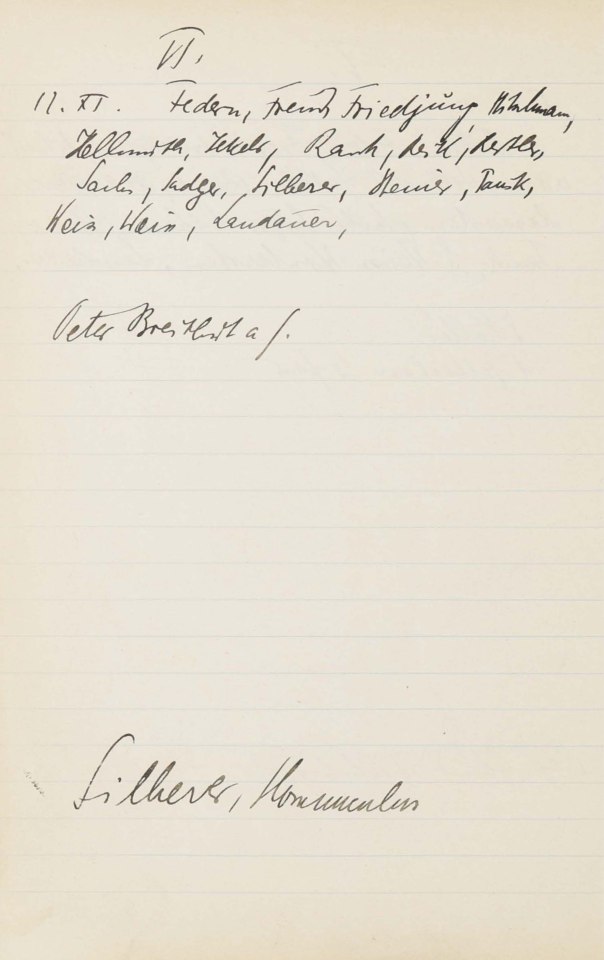 VI.
12. XI. Federn, Freud, Friedjung, Hitschmann,
Hellmuth, Jekels, Rank, Reik, Reitler,
Sachs, Sadger, Silberer, Steiner, Tausk,
Weiss, Landauer,
Peter a G.
Silberer, Homunculus